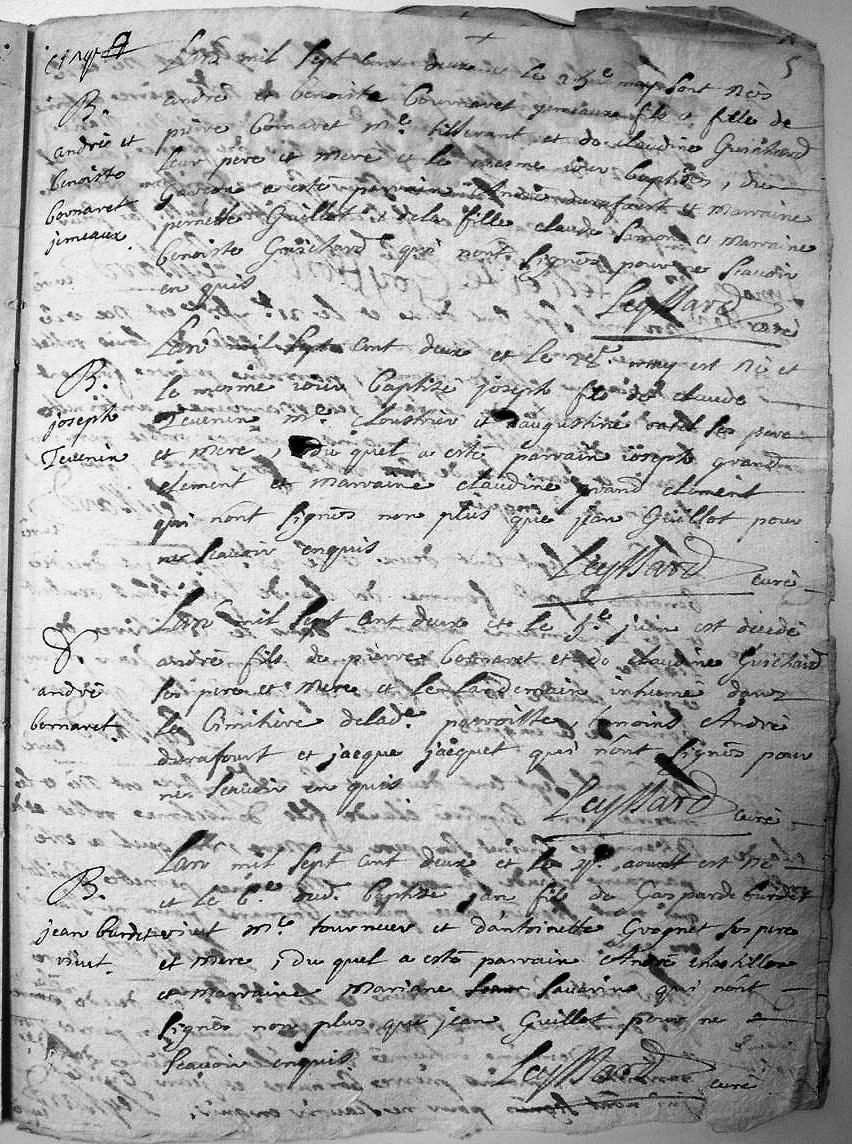 5
B.
andré et
benoiste
bornaret
jemeaux.
Lan mil sept cent deux et le may sont nés
andré et benoiste bornaret jemeaux fils et fille de
pierre bornaret me tisserant et de claudine Guichard
leur pere et mere et le mesme iour baptisés, du
garcon a esté parrain André durafourt et marraine
pernette Guillot et de la fille claude et marraine
benoiste Guichard qui nont signés pour ne scavoir
enquis
Leyssard curé
B.
joseph
Tevenin
Lan mil sept cent deux et le may est né et
le mesme iour baptizé joseph fils de claude
Tevenin me cloustrier et daugustine ses pere
et mere, du quel a esté parrain ioseph grand
clement et marraine claudine grand clement
qui nont signés non plus que jean Guillot pour
ne scavoir enquis
Leyssard curé
andré
bornaret.
Lan mil sept cent deux et le juin est decedé
andré fils de pierre bornaret et de claudine Guichard
ses pere et mere et le landemain inhumé dans
le cimitiére de lade parroisse, temoins André
durafourt et jacque jacquet qui nont signés pour
ne scavoir enquis
Leyssard curé
B.
jean burdet
viut.
Lan mil sept cent deux et le aoust est né
et le 6e dud. baptizé jan fils de Gaspard burdet
viut me tourneur et dantoinette Grognet ses pere
et mere, du quel a esté parrain André chatillon
et marraine Mariane Saverine qui nont
signés non plus que jean Guillot pour ne
scavoir enquis.
Leyssard curé